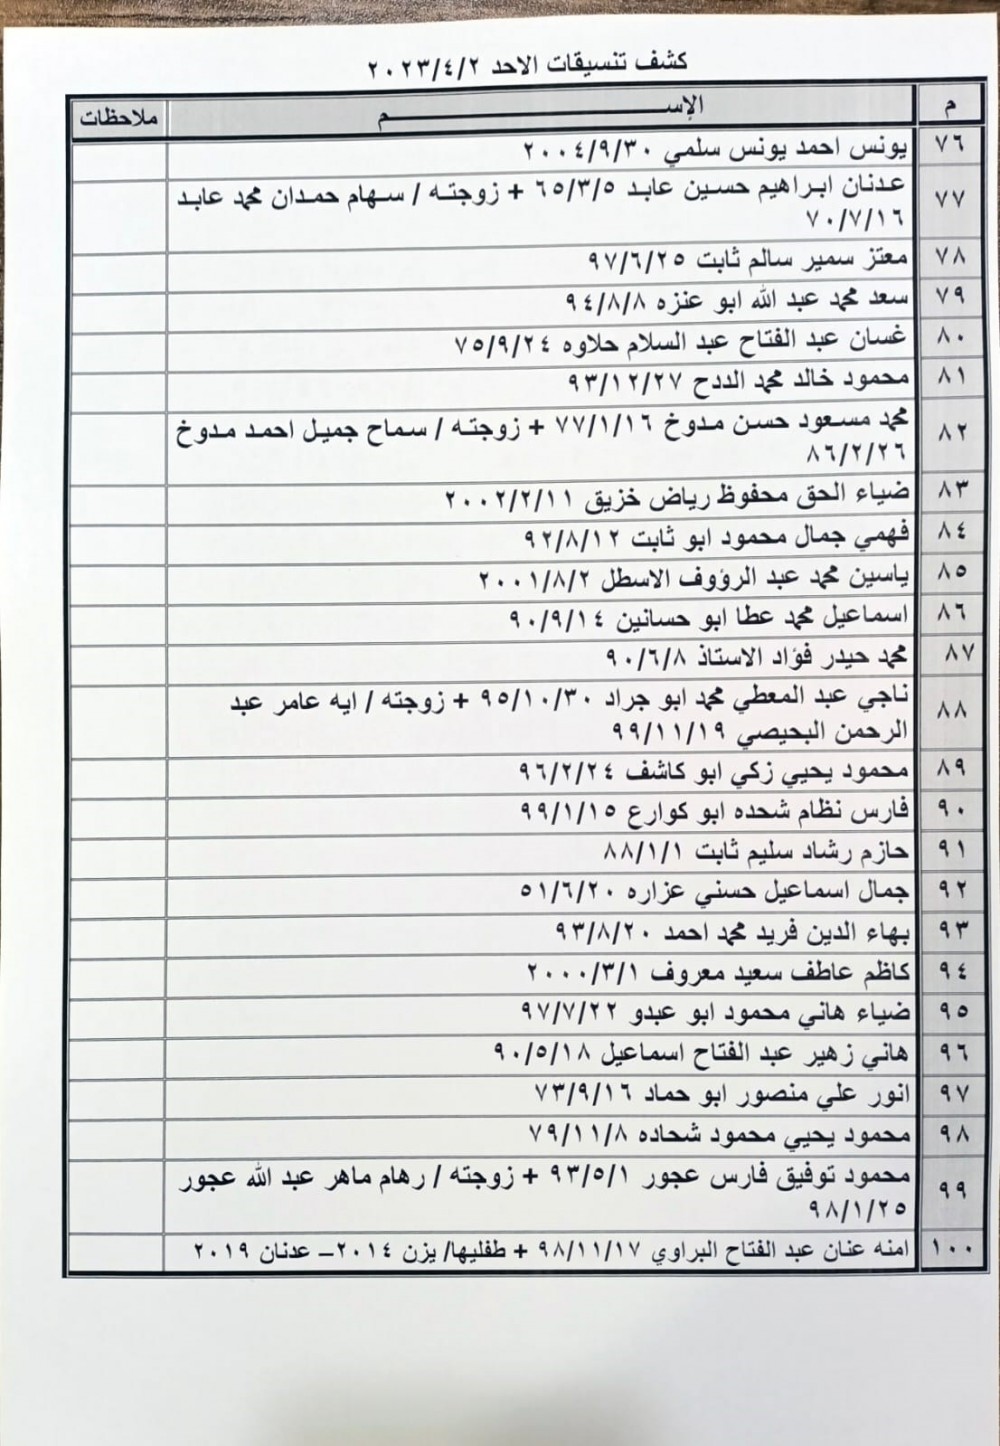 كشف تنسيقات الاحد ٢٠٢٣/٤/٢
م الإســـــــــــــــــــــــم ملاحظات
٧٦ يونس احمد يونس سلمي ٢٠٠٤/٩/٣٠
٧٧ عدنان ابراهيم حسين عابد ٦٥/٣/٥ + زوجته / سهام حمدان محمد عابد
٧٠/٧/١٦
٧٨ معتز سمير سالم ثابت ٩٧/٦/٢٥
٧٩ سعد محمد عبد الله ابو عنزه ٩٤/٨/٨
٨٠ غسان عبد الفتاح عبد السلام حلاوه ٧٥/٩/٢٤
٨١ محمود خالد محمد الددح ٩٣/١٢/٢٧
٨٢ محمد مسعود حسن مدوخ ٧٧/١/١٦ + زوجته / سماح جميل احمد مدوخ
٨٦/٢/٢٦
٨٣ ضياء الحق محفوظ رياض خزيق ٢٠٠٢/٢/١١
٨٤ فهمي جمال محمود ابو ثابت ٩٢/٨/١٢
٨٥ ياسين محمد عبد الرؤوف الاسطل ٢٠٠١/٨/٢
٨٦ اسماعيل محمد عطا ابو حسانين ٩٠/٩/١٤
٨٧ محمد حيدر فؤاد الاستاذ ٩٠/٦/٨
٨٨ ناجي عبد المعطي محمد ابو جراد ٩٥/١٠/٣٠ + زوجته / ايه عامر عبد
الرحمن البحيصي ٩٩/١١/١٩
٨٩ محمود يحيي زكي ابو كاشف ٩٦/٢/٢٤
٩٠ فارس نظام شحده ابو كوارع ٩٩/١/١٥
٩١ حازم رشاد سليم ثابت ٨٨/١/١
٩٢ جمال اسماعيل حسني عزاره ٥١/٦/٢٠
٩٣ بهاء الدين فريد محمد احمد ٩٣/٨/٢٠
٩٤ كاظم عاطف سعيد معروف ٢٠٠٠/٣/١
٩٥ ضياء هاني محمود ابو عبدو ٩٧/٧/٢٢
٩٦ هاني زهير عبد الفتاح اسماعيل ٩٠/٥/١٨
٩٧ انور علي منصور ابو حماد ٧٣/٩/١٦
٩٨ محمود يحيي محمود شحاده ٧٩/١١/٨
٩٩ محمود توفيق فارس عجور ٩٣/٥/١ + زوجته / رهام ماهر عبد الله عجور
٩٨/١/٢٥
١٠٠ امنه عنان عبد الفتاح البراوي ٩٨/١١/١٧ + طفليها/ يزن ٢٠١٤– عدنان ٢٠١٩